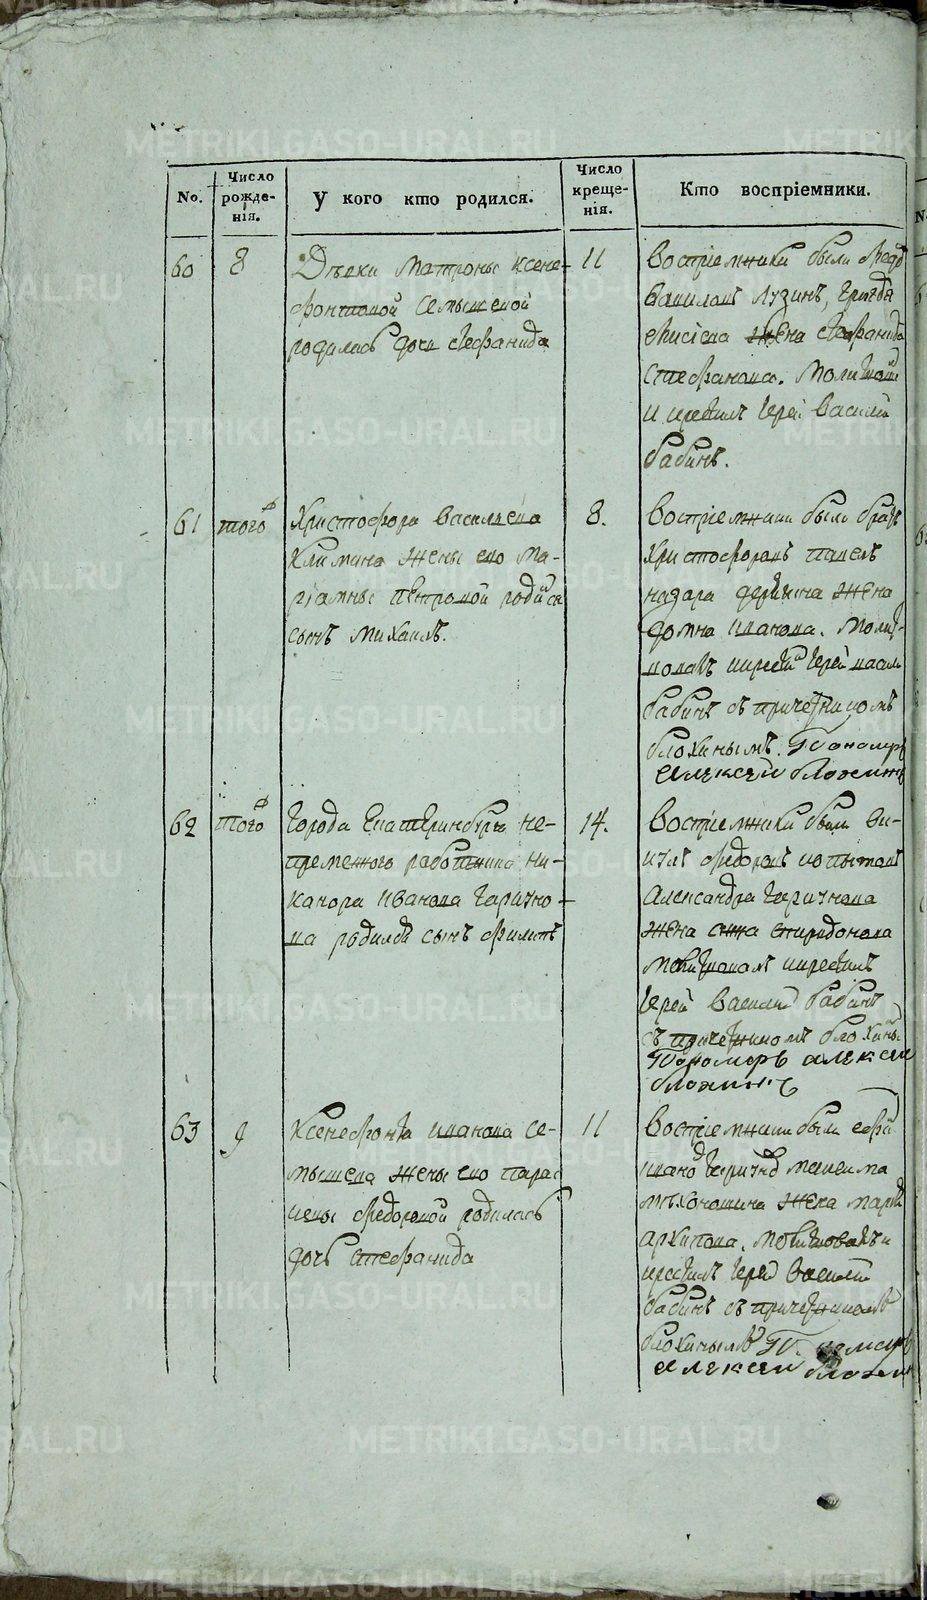 METRIKI.GASO-URAL.RU
No.
Число рожденія.
У кого кто родился.
Число крещенія.
Кто воспріемники.
60
8
Дѣвки Матроны Ксене-
фонтовой Семышевой
родилась дочь Стефанида
11
Воспріемники были Ѳедоръ
Лузинъ,
жена Стефанида
Стефанова. Молитвов
и крестилъ Іерей Василій
бабинъ.
61
того ф
Христофора Васильева
Климина жены ево Ма-
ріамны Петровой родился
сынъ Михаилъ.
8.
Воспріемники были братъ
Христофоровъ Павелъ
назара жена
домна Иванова. Молит-
вовалъ и крестилъ Іерей васил
бабинъ съ причетникомъ
блохинымъ. Пономарь
Алексей блохинъ
62
того ф
Города Екатеринбурга не-
пременного работника ни-
канора Иванова Гарично-
ва родился сынъ Филипъ
14.
Воспріемники были
Федоровъ Копытовъ
Александра Гаричнова
жена спиридонова
Молитвовалъ и крестилъ
Іерей Василій бабинъ
съ причетникомъ блохины
Пономарь Алексей
блохинъ
63
9
Ксенефонта Иванова Се-
мышева жены ево Парас
кевы Федоровой родилась
дочь Стефанида
11
Воспріемники были
Иванов Гаричнов максима
жена марья
архипова. Молитвовалъ и
крестилъ Іерей Василій
бабинъ съ причетникомъ
блохинымъ
Алексей блохин